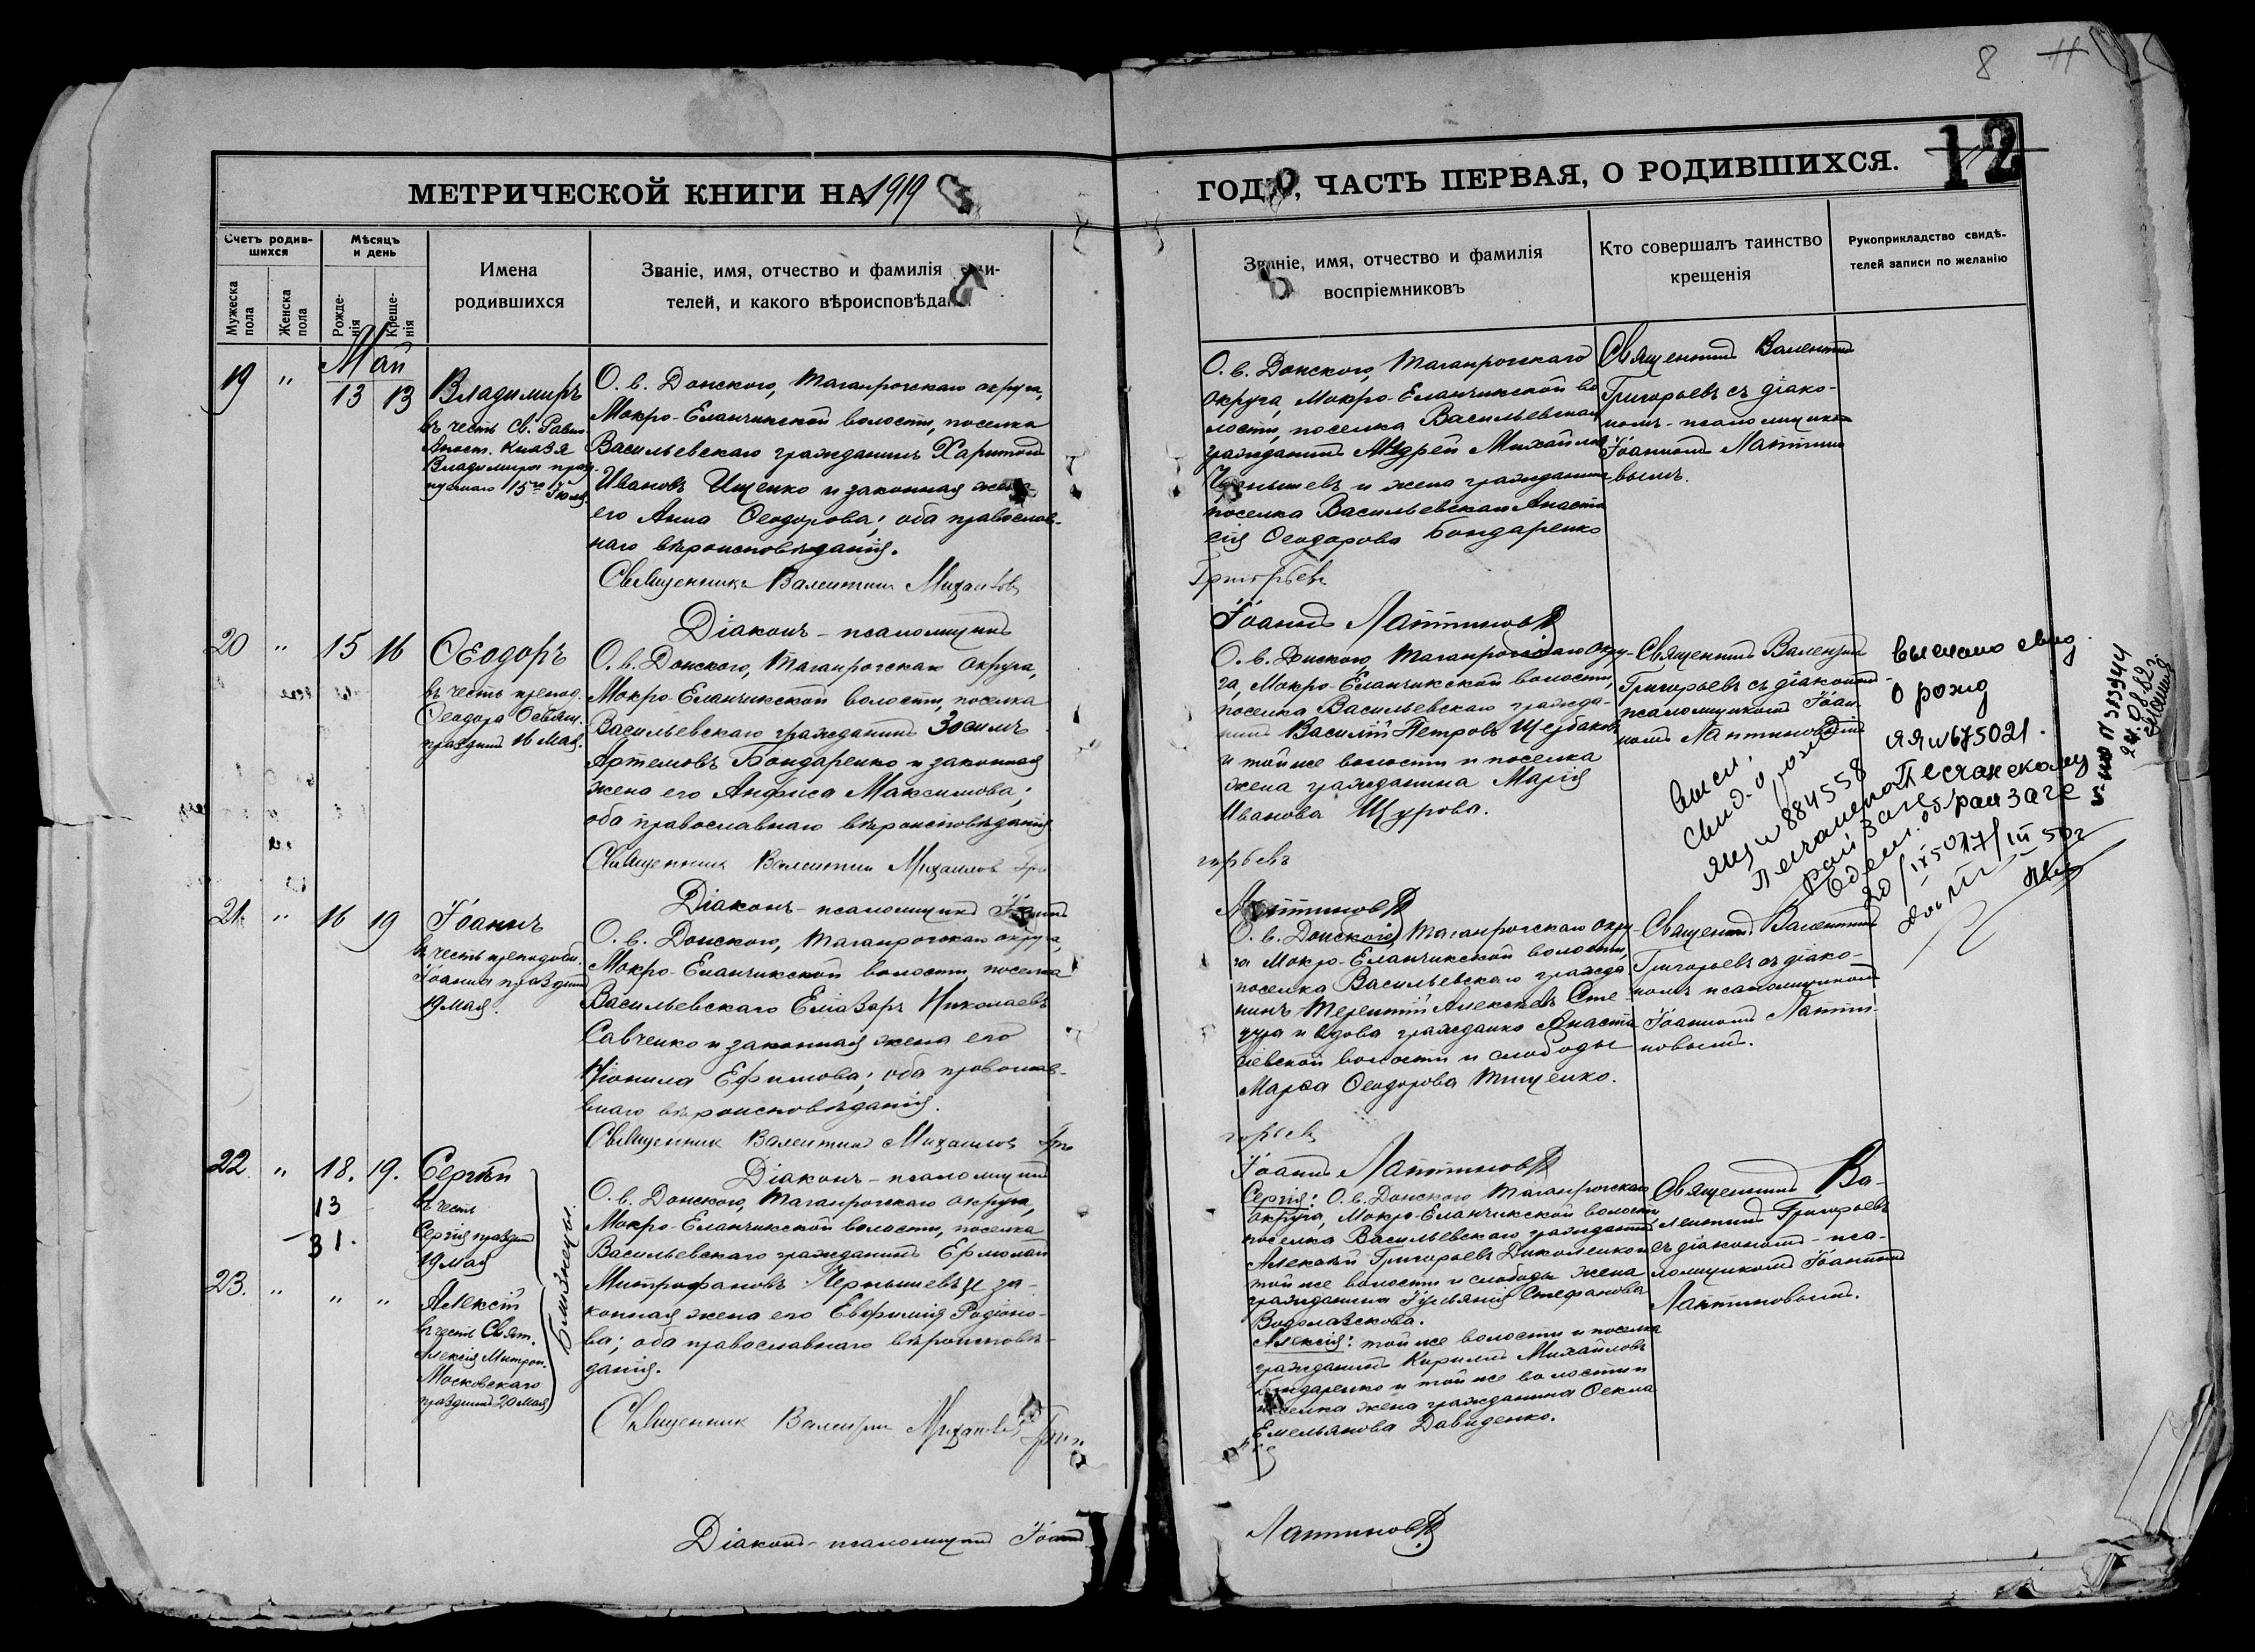 8 11
МЕТРИЧЕСКОЙ КНИГИ НА 1919
ГОДЪ, ЧАСТЬ ПЕРВАЯ, О РОДИВШИХСЯ.
12
Счетъ родив-
шихся
Мужеска
пола
Женска
пола
Мѣсяцъ
и день
Рожде-
нія
Креще-
нія
Имена
родившихся
Званіе, имя, отчество и фамилія
телей, и какого вѣроисповѣда
Званіе, имя, отчество и фамилія
воспріемниковъ
Кто совершалъ таинство
крещенія
Рукоприкладство свидѣ-
телей записи по желанію
Май
19 " 13 13
Владимиръ
въ честь Св. Равно
Апост. Князя
Владимира празд.
15го Іюля
О. в. Донского, Таганрогскаго округа,
Мокро-Еланчикской волости, поселка
Васильевскаго гражданинъ Харитонъ
Ивановъ Ищенко и законная жена
его Анна Ѳеодорова; оба православ-
наго вѣроисповѣданія.
Священникъ Валентинъ Михаиловъ
Діаконъ-псаломщикъ
О. в. Донского, Таганрогскаго
округа, Мокро-Еланчикской во
лости, поселка Васильевскаго
гражданинъ Андрей Михайловъ
Чернышевъ и жена гражданина
поселка Васильевскаго Анаста
сія Ѳеодорова Бондаренко
Григорьевъ
Іоаннъ Лаптиновъ
Священникъ Валентинъ
Григорьевъ съ діако-
номъ-псаломщикомъ
Іоанномъ Лаптино
вымъ.
20 " 15 16
Ѳеодоръ
въ честь препод.
Ѳеодора Освящ.
праздник 16 Мая.
О. в. Донского, Таганрогскаго округа,
Мокро-Еланчикской волости, поселка
Васильевскаго гражданинъ Зосимъ
Артемовъ Бондаренко и законная
жена его Анфиса Максимова;
оба православнаго вѣроисповѣданія
Священникъ Валентинъ Михаиловъ Гри
Діаконъ-псаломщикъ Іоаннъ
О. в. Донского, Таганрогскаго окру-
га, Мокро-Еланчикской волости,
поселка Васильевскаго гражда-
нинъ Василій Петровъ Щербаковъ
и той же волости и поселка
жена гражданина Марія
Иванова Щурова.
горьевъ
Лаптиновъ
Священникъ Валентинъ
Григорьевъ съ діакономъ-
псаломщикомъ Іоан-
номъ Лаптиновымъ
выслано свид.
о рожд
ЯЯ №675021.
Песчанскому
рай загс
17/III 50г
Высл.
свид. о рожд
ЯЩ № 884558
21. " 16 19
Іоаннъ
въ честь преподобн.
Іоанна праздник
19 Мая.
О. в. Донского, Таганрогскаго округа,
Мокро-Еланчикской волости, поселка
Васильевскаго Елизаръ Николаевъ
Савченко и законная жена его
Неонила Ефимова; оба православ-
внаго вѣроисповѣданія.
Священникъ Валентинъ Михаиловъ Гри
Діаконъ-псаломщикъ
О. в. Донского, Таганрогскаго окру-
га Мокро-Еланчикской волости,
поселка Васильевскаго гражда
нинъ Терентій Алексѣевъ Сте-
цура и вдова гражданка Анаста
сіевской волости и слободы
Марѳа Ѳеодорова Тищенко.
горьевъ
Іоаннъ Лаптиновъ
Священникъ Валентинъ
Григорьевъ съ діако-
номъ псаломщикомъ
Іоанномъ Лапти-
новымъ.
22. " 18. 19.
13
31.
Сергѣй
въ честь
Сергія праздник
19 Мая
23. " " "
Алексій
въ честь Свят.
Алексія Митроп.
Московскаго
праздник 20 Мая
близнецы.
О. в. Донского, Таганрогскаго округа,
Мокро-Еланчикской волости, поселка
Васильевскаго гражданинъ Ермолай
Митрофановъ Чернышевъ и за-
конная жена его Евфимія Родіоно-
ва; оба православнаго вѣроисповѣ-
данія.
Священникъ Валентинъ Михаиловъ Григ
Діаконъ-псаломщикъ Іоаннъ
Сергія: О. в. Донского Таганрогскаго
округа, Мокро-Еланчикской волости
поселка Васильевскаго гражданинъ
Алексѣй Григорьевъ
той же волости и слободы жена
гражданина Іуліанія Стефанова
Водолазскова.
Алексія: той же волости и поселка
гражданинъ Кирилъ Михайловъ
Бондаренко и той же волости и
поселка жена гражданина Ѳекла
Емельянова Давиденко.
Лаптиновъ
Священникъ Ва-
лентинъ Григорьевъ
съ діакономъ-пса-
ломщикомъ Іоанномъ
Лаптиновымъ.